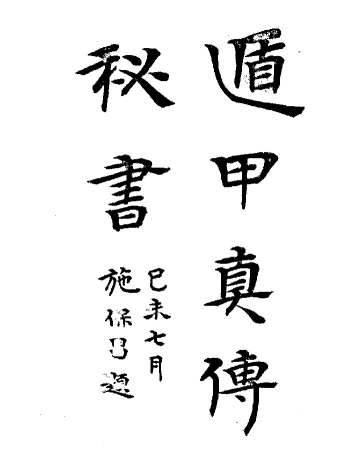 遁甲真傳
秘書
己未七月
施保 題